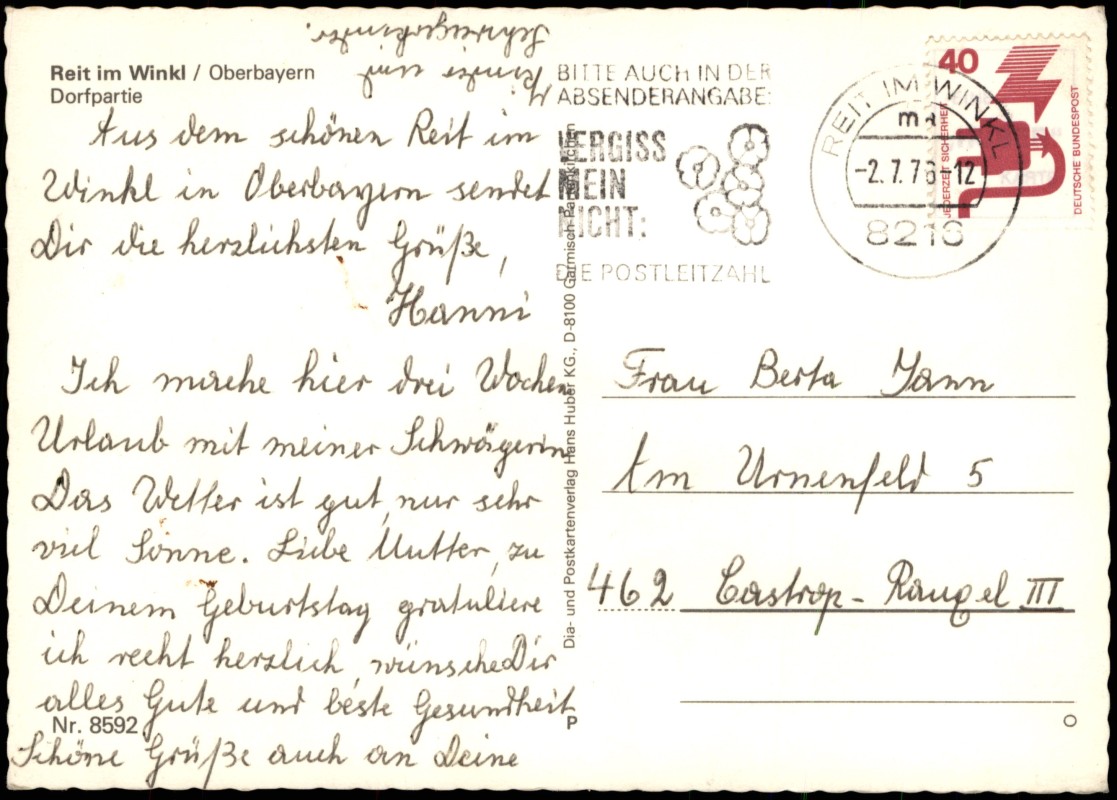 Reit im Winkl / Oberbayern
Dorfpartie
Aus dem schönen Reit im
Winkl in Oberbayern sendet
Dir die herzlichsten Grüße,
Hanni
Ich mache hier drei Wochen
Urlaub mit meiner Schwägerin
Das Wetter ist gut, nur sehr
viel Sonne. Liebe Mutter, zu
Deinem Geburtstag gratuliere
ich recht herzlich, wünsche Dir
alles Gute und beste Gesundheit
Schöne Grüße auch an Deine
Kinder und
Schwiegerkinder.
Nr. 8592
P
Dia- und Postkartenverlag Hans Huber KG., D-8100 Garmisch-Partenkirchen
BITTE AUCH IN DER
ABSENDERANGABE:
VERGISS
MEIN
NICHT:
DIE POSTLEITZAHL
REIT IM WINKL
-2.7.76-12
8216
40
JEDERZEIT SICHERHEIT
DEUTSCHE BUNDESPOST
Frau Berta Jann
Am Urnenfeld 5
462 Castrop-Rauxel III